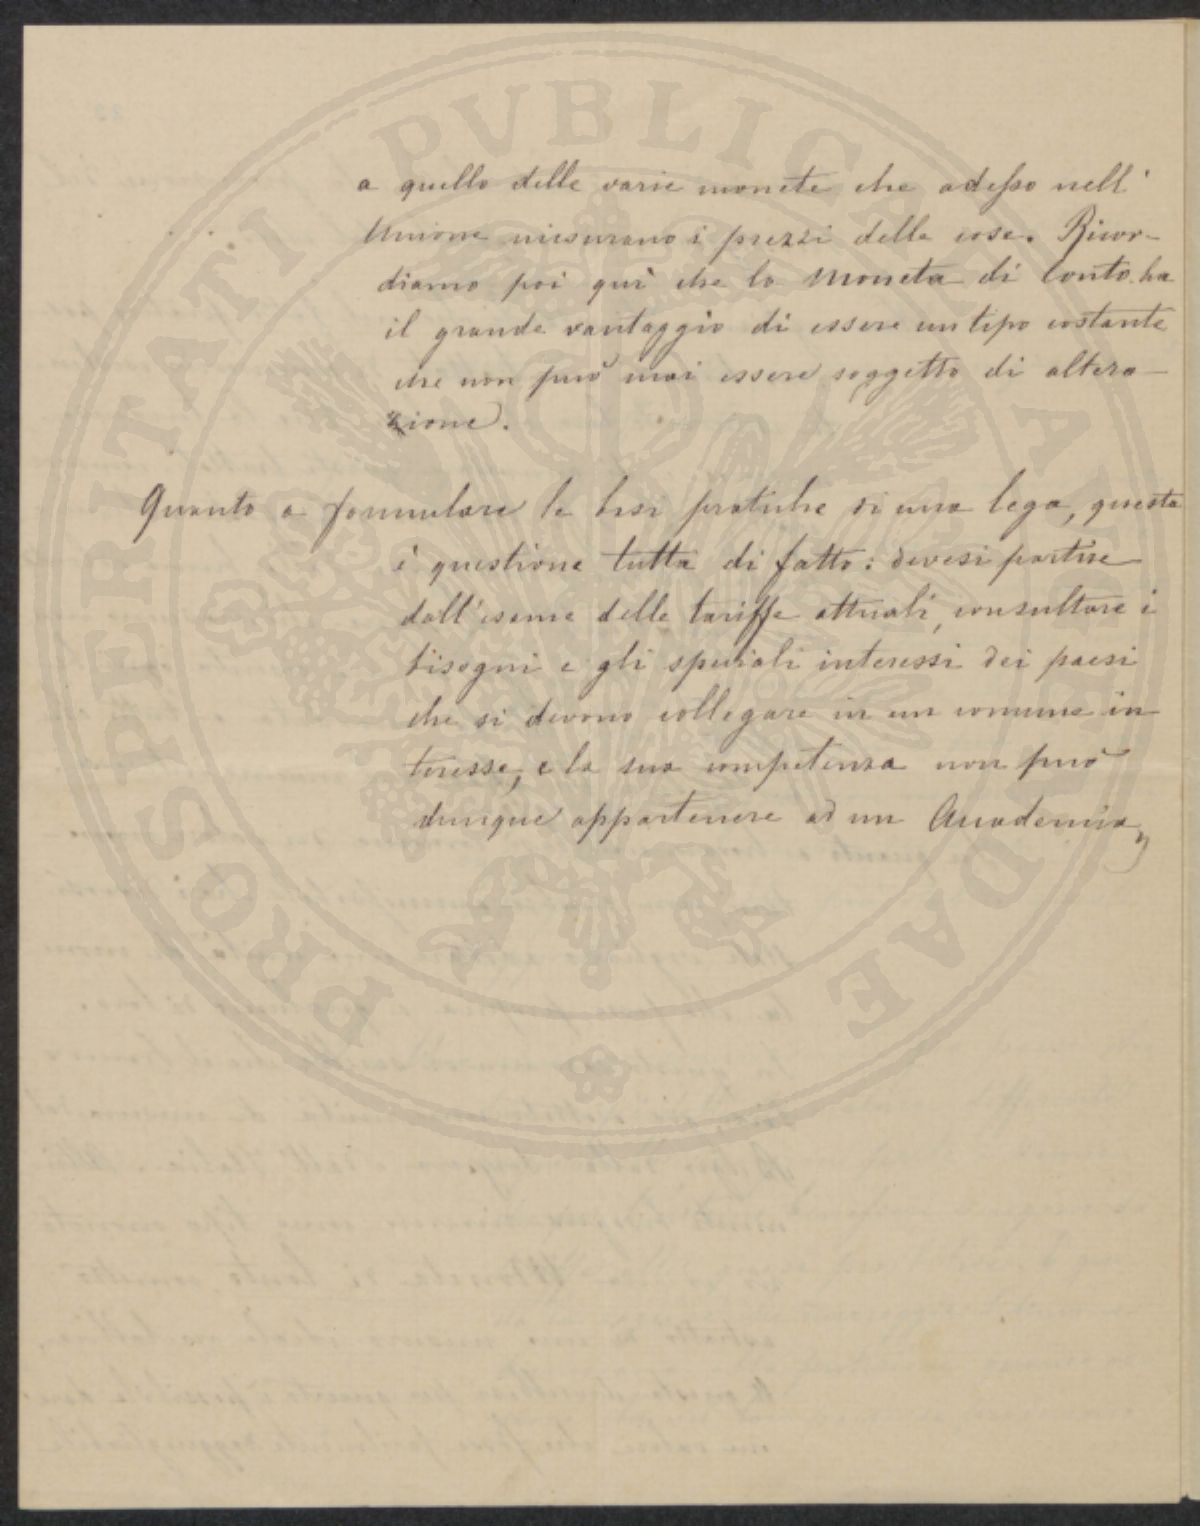 a quello delle varie monete che adesso nell'
Unione misurano i prezzi delle cose. Ricor-
diamo poi quì che la Moneta di Conto ha
il grande vantaggio di essere un tipo costante
che non può mai essere soggetto di altera-
zione.
Quanto a formulare le basi pratiche di una lega, questa
è questione tutta di fatto: devesi partire
dall'esame delle tariffe attuali, consultare i
bisogni e gli speciali interessi dei paesi
che si devono collegare in un comune in-
teresse, e la sua competenza non può
dunque appartenere ad un Accademia,
PROSPERITATI PVBLICAE AVGENDAE